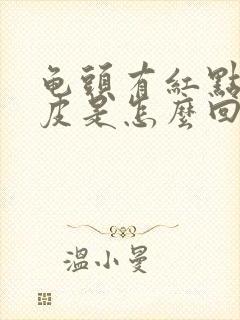 龟頭有紅點
皮是怎麼回
溫小曼